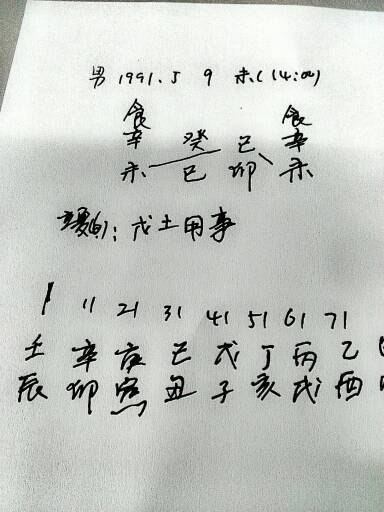 男 1991.5 9 未(14:00)
食 食
辛 癸 己 辛
未 巳 卯 未
戊土用事
1 11 21 31 41 51 61 71
壬 辛 庚 己 戊 丁 丙 乙
辰 卯 寅 丑 子 亥 戌 酉